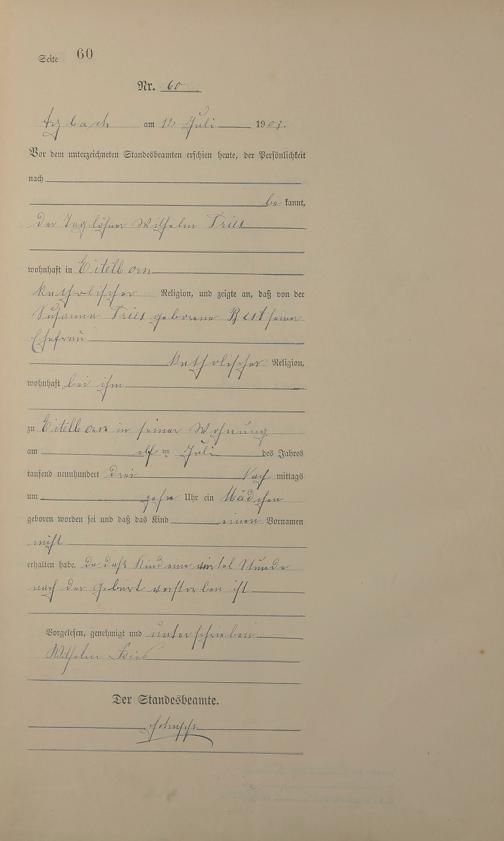 Seite 60
Nr. 60
Arzbach am 12 Juli 1903.
Vor dem unterzeichneten Standesbeamten erschien heute, der Persönlichkeit
nach
be kannt,
der Taglöhner Wilhelm Fries
wohnhaft in Eitelborn
katholischer Religion, und zeigte an, daß von der
Susanna Fries geborene Best seiner
Ehefrau
katholischer Religion,
wohnhaft bei ihm
zu Eitelborn in seiner Wohnung
am elf ten Juli des Jahres
tausend neunhundert drei Nach mittags
um zehn Uhr ein Mädchen
geboren worden sei und daß das Kind einen Vornamen
nicht
erhalten habe, da daß Kind eine viertel Stunde
nach der Geburt verstorben ist
Vorgelesen, genehmigt und unterschrieben
Wilhelm Fries
Der Standesbeamte.